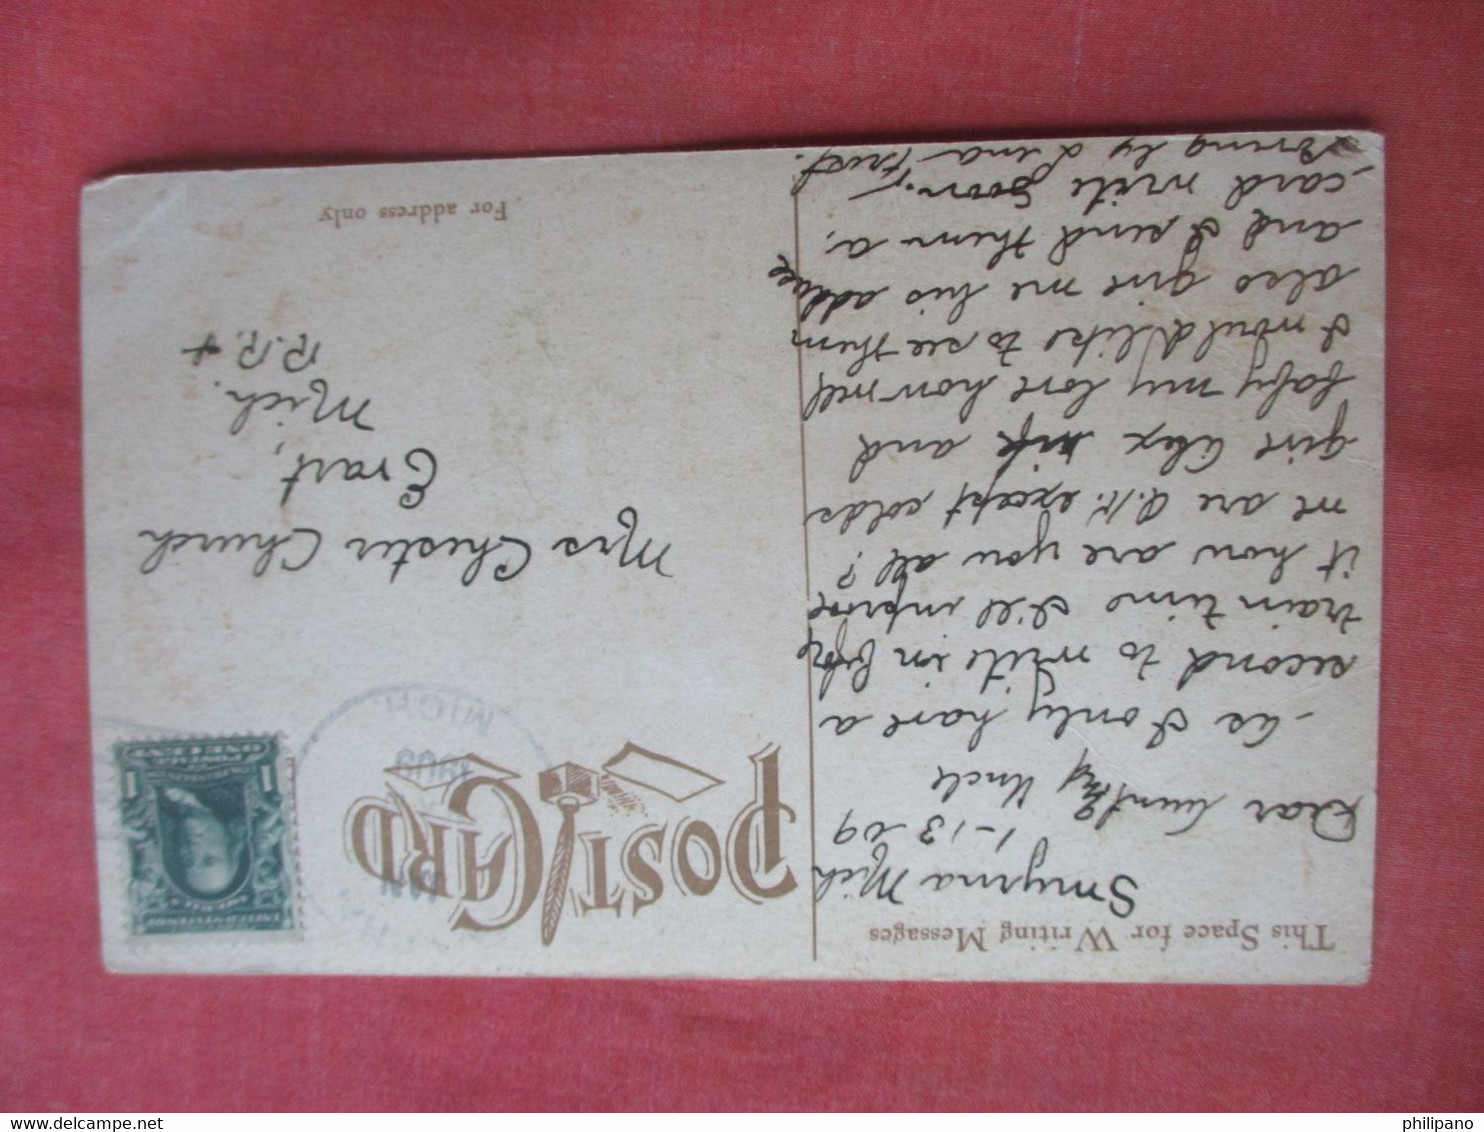 This Space for Writing Messages
Smyrna Mich
1-13-09
Dear Aunt & Uncle
as I only have a
second to write in before
train time I'll improve
it how are you all?
we are O.K. except colds
give Alex and
baby my love how well
I would like to see them
also give me his address
and I send them a
card write soon.
Loving ly Lena
POST CARD
MICH
1909
Mrs Chester Church
Evart,
Mich.
R.R. 4
For address only
UNITED STATES OF AMERICA
1 1
POSTAGE
ONE CENT
philipano